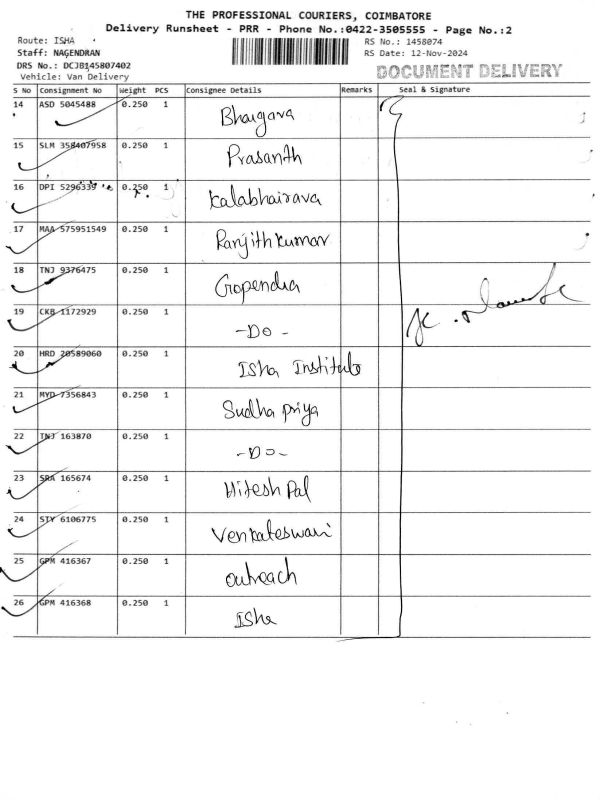 THE PROFESSIONAL COURIERS, COIMBATORE
Delivery Runsheet - PRR - Phone No.:0422-3505555 - Page No.:2
Route: ISHA RS No.: 1458074
Staff: NAGENDRAN RS Date: 12-Nov-2024
DRS No.: DCJB145807402 DOCUMENT DELIVERY
Vehicle: Van Delivery
S No Consignment No Weight PCS Consignee Details Remarks Seal & Signature
14 ASD 5045488 0.250 1 Bhargava
15 SLM 358407958 0.250 1 Prasanth
16 DPI 5296339 0.250 1 Kalabhairava
17 MAA 575951549 0.250 1 Ranjith Kumar
18 TNJ 9376475 0.250 1 Gopendra
19 CKB 1172929 0.250 1 -DO-
20 HRD 20589060 0.250 1 Isha Institute
21 MYD 7356843 0.250 1 Sudha Priya
22 TNJ 163870 0.250 1 -DO-
23 SRA 165674 0.250 1 Hitesh Pal
24 STY 6106775 0.250 1 Venkateswari
25 GPM 416367 0.250 1 outreach
26 GPM 416368 0.250 1 Isha